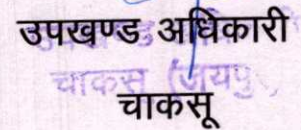 उपखण्ड अधिकारी
चाकसू (जयपु
चाकसू